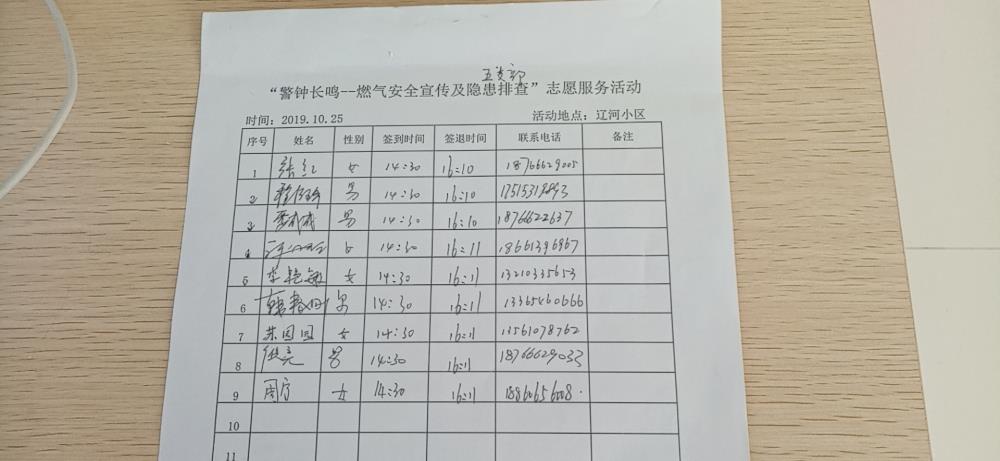 五支部
“警钟长鸣--燃气安全宣传及隐患排查”志愿服务活动
时间：2019.10.25 活动地点：辽河小区
序号 姓名 性别 签到时间 签退时间 联系电话 备注
1 张红 女 14:30 16:10 18766629005
2 男 14:30 16:10
3 男 14:30 16:10 18766622637
4 女 14:30 16:11 18661396967
5 李艳敏 女 14:30 16:11 13210335653
6 男 14:30 16:11 13365460666
7 苏园园 女 14:30 16:11 13561078762
8 男 14:30 16:11 18766629033
9 周宁 女 14:30 16:11
10
11